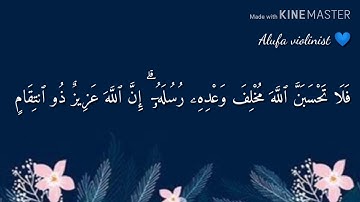 Made with KINEMASTER
Alufa violinist 💙
فَلَا تَحْسَبَنَّ ٱللَّهَ مُخْلِفَ وَعْدِهِۦ رُسُلَهُۥٓ ۗ إِنَّ ٱللَّهَ عَزِيزٌ ذُو ٱنتِقَامٍ